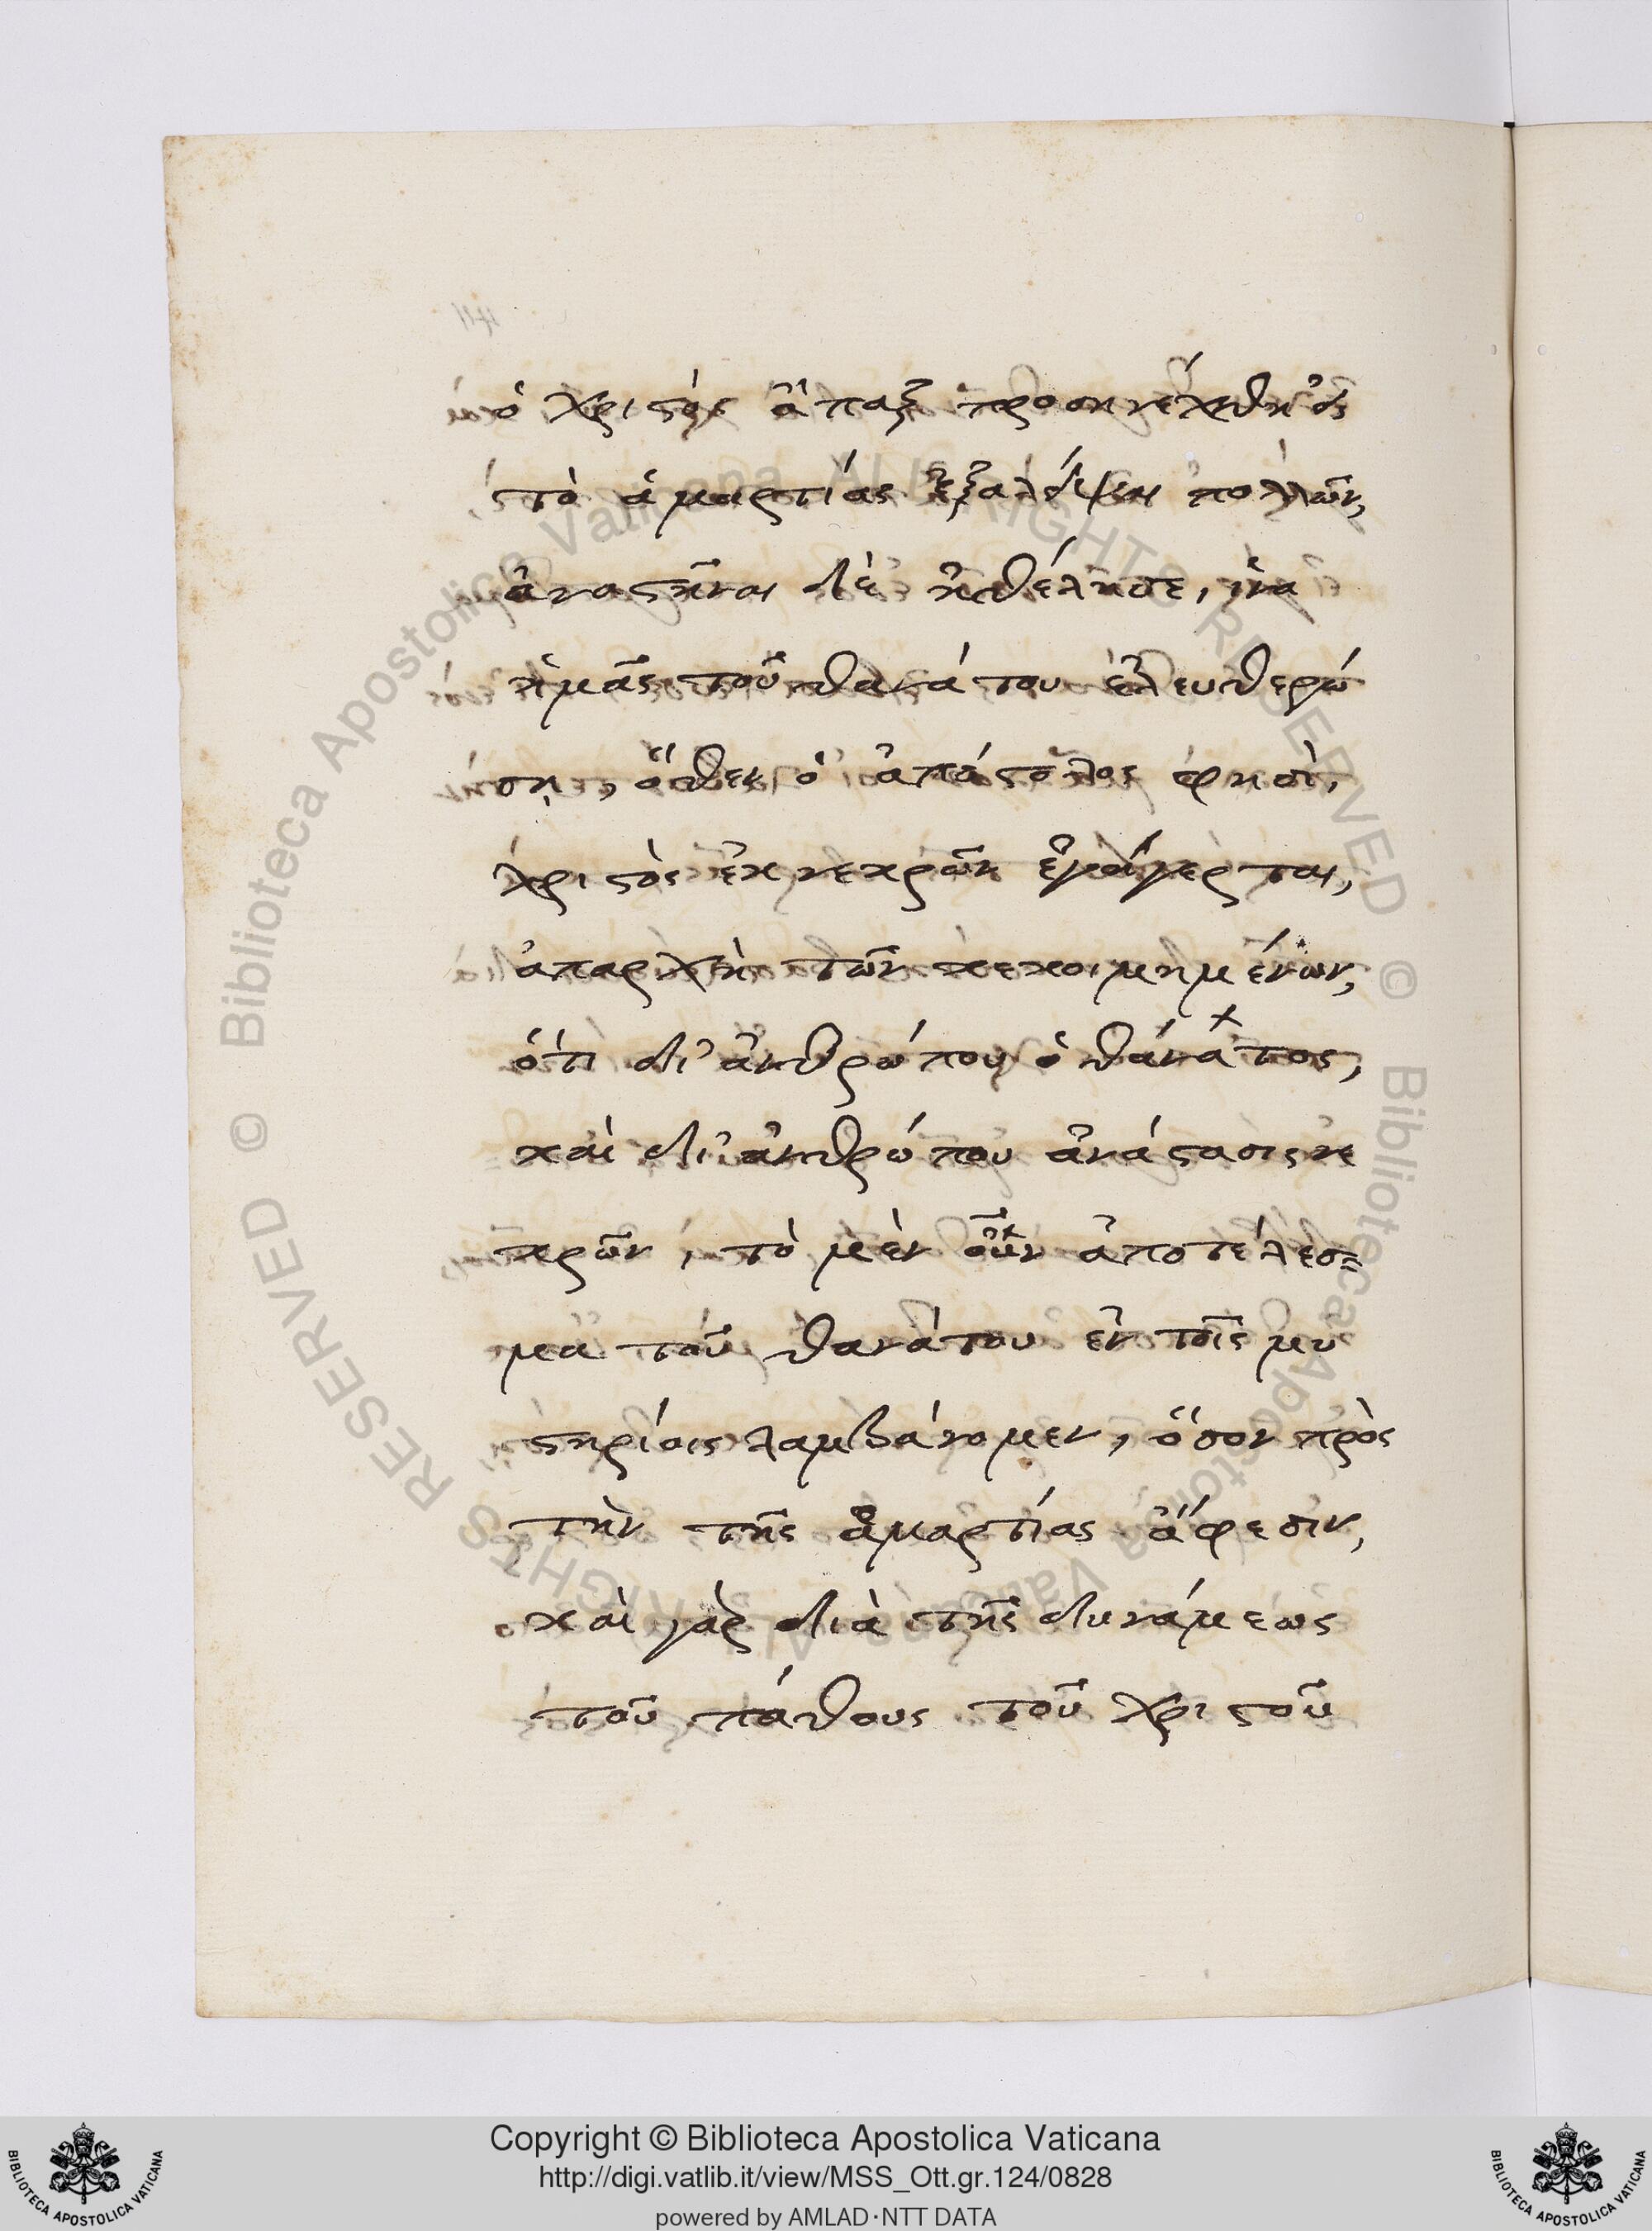 ὁ χριστὸς ἅπαξ προσηνέχθη εἰς
τὸ ἁμαρτίας ἐξαλείψαι πολλῶν,
ἀναστῆναι δὲ ἠθέλησε, ἵνα
ἡμᾶς τοῦ θανάτου ἐλευθερώ
σῃ, ὅθεν ὁ ἀπόστολος φησὶ,
χριστὸς ἐκ νεκρῶν ἐγήγερται,
ἀπαρχὴ τῶν κεκοιμημένων,
ὅτι δι' ἀνθρώπου ὁ θάνατος,
καὶ δι' ἀνθρώπου ἀνάστασις νε
κρῶν, τὸ μὲν οὖν ἀποτέλεσ=
μα τοῦ θανάτου ἐν τοῖς μυ
στηρίοις λαμβάνομεν, ὅσον πρὸς
τὴν τῆς ἁμαρτίας ἄφεσιν,
καὶ γὰρ διὰ τῆς δυνάμεως
τοῦ πάθους τοῦ χριστοῦ
Copyright © Biblioteca Apostolica Vaticana
http://digi.vatlib.it/view/MSS_Ott.gr.124/0828
powered by AMLAD·NTT DATA